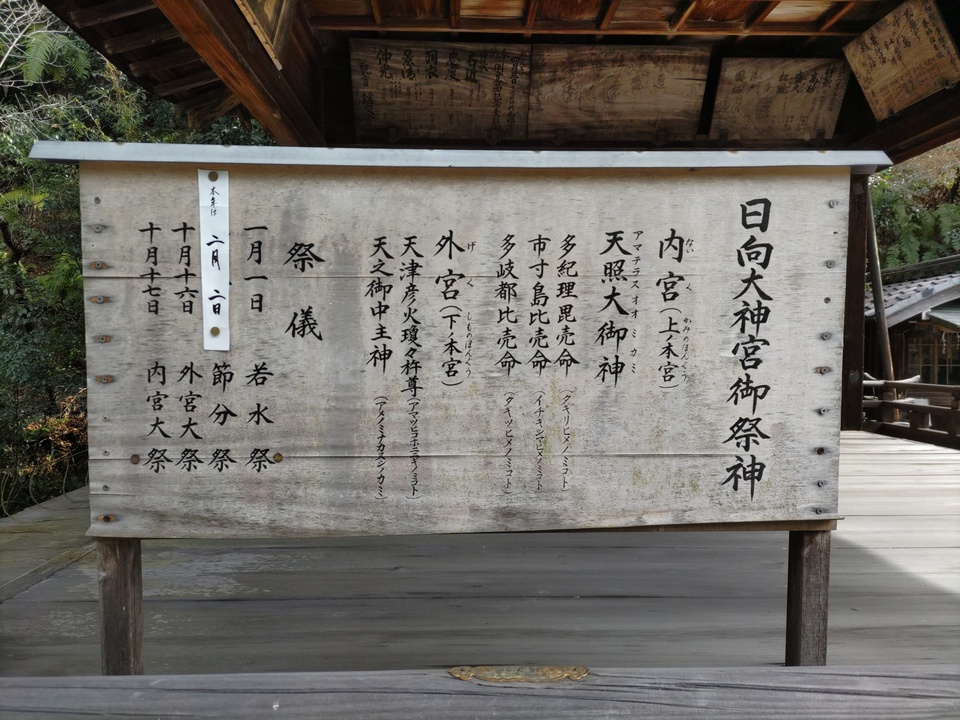 日向大神宮御祭神
内宮（上ノ本宮）
ないく　かみのほんぐう
天照大御神
アマテラスオオミカミ
多紀理毘売命（タキリヒメノミコト）
市寸島比売命（イチキシマヒメノミコト）
多岐都比売命（タキツヒメノミコト）
外宮（下ノ本宮）
げくう　しものほんぐう
天津彦火瓊々杵尊（アマツヒコホニニギノミコト）
天之御中主神（アメノミナカヌシノカミ）
祭儀
一月一日　若水祭
本年は　二月　二日　節分祭
十月十六日　外宮大祭
十月十七日　内宮大祭